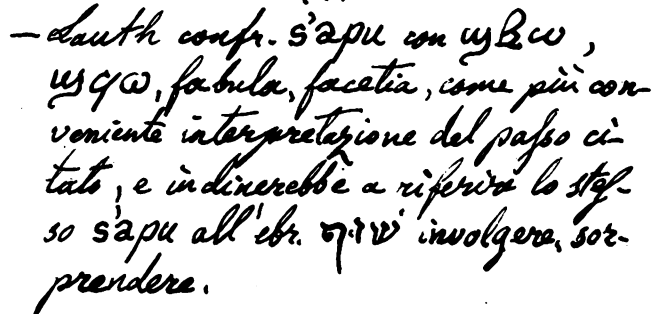 — Lauth confr. s'apu con ϣⲃⲱ,
ϣϥⲱ, fabula, facetia, come più con-
veniente interpretazione del paſso ci-
tato, e inclinerebbe a riferire lo steſ-
so s'apu all'ebr. שׁוּף involgere, sor-
prendere.